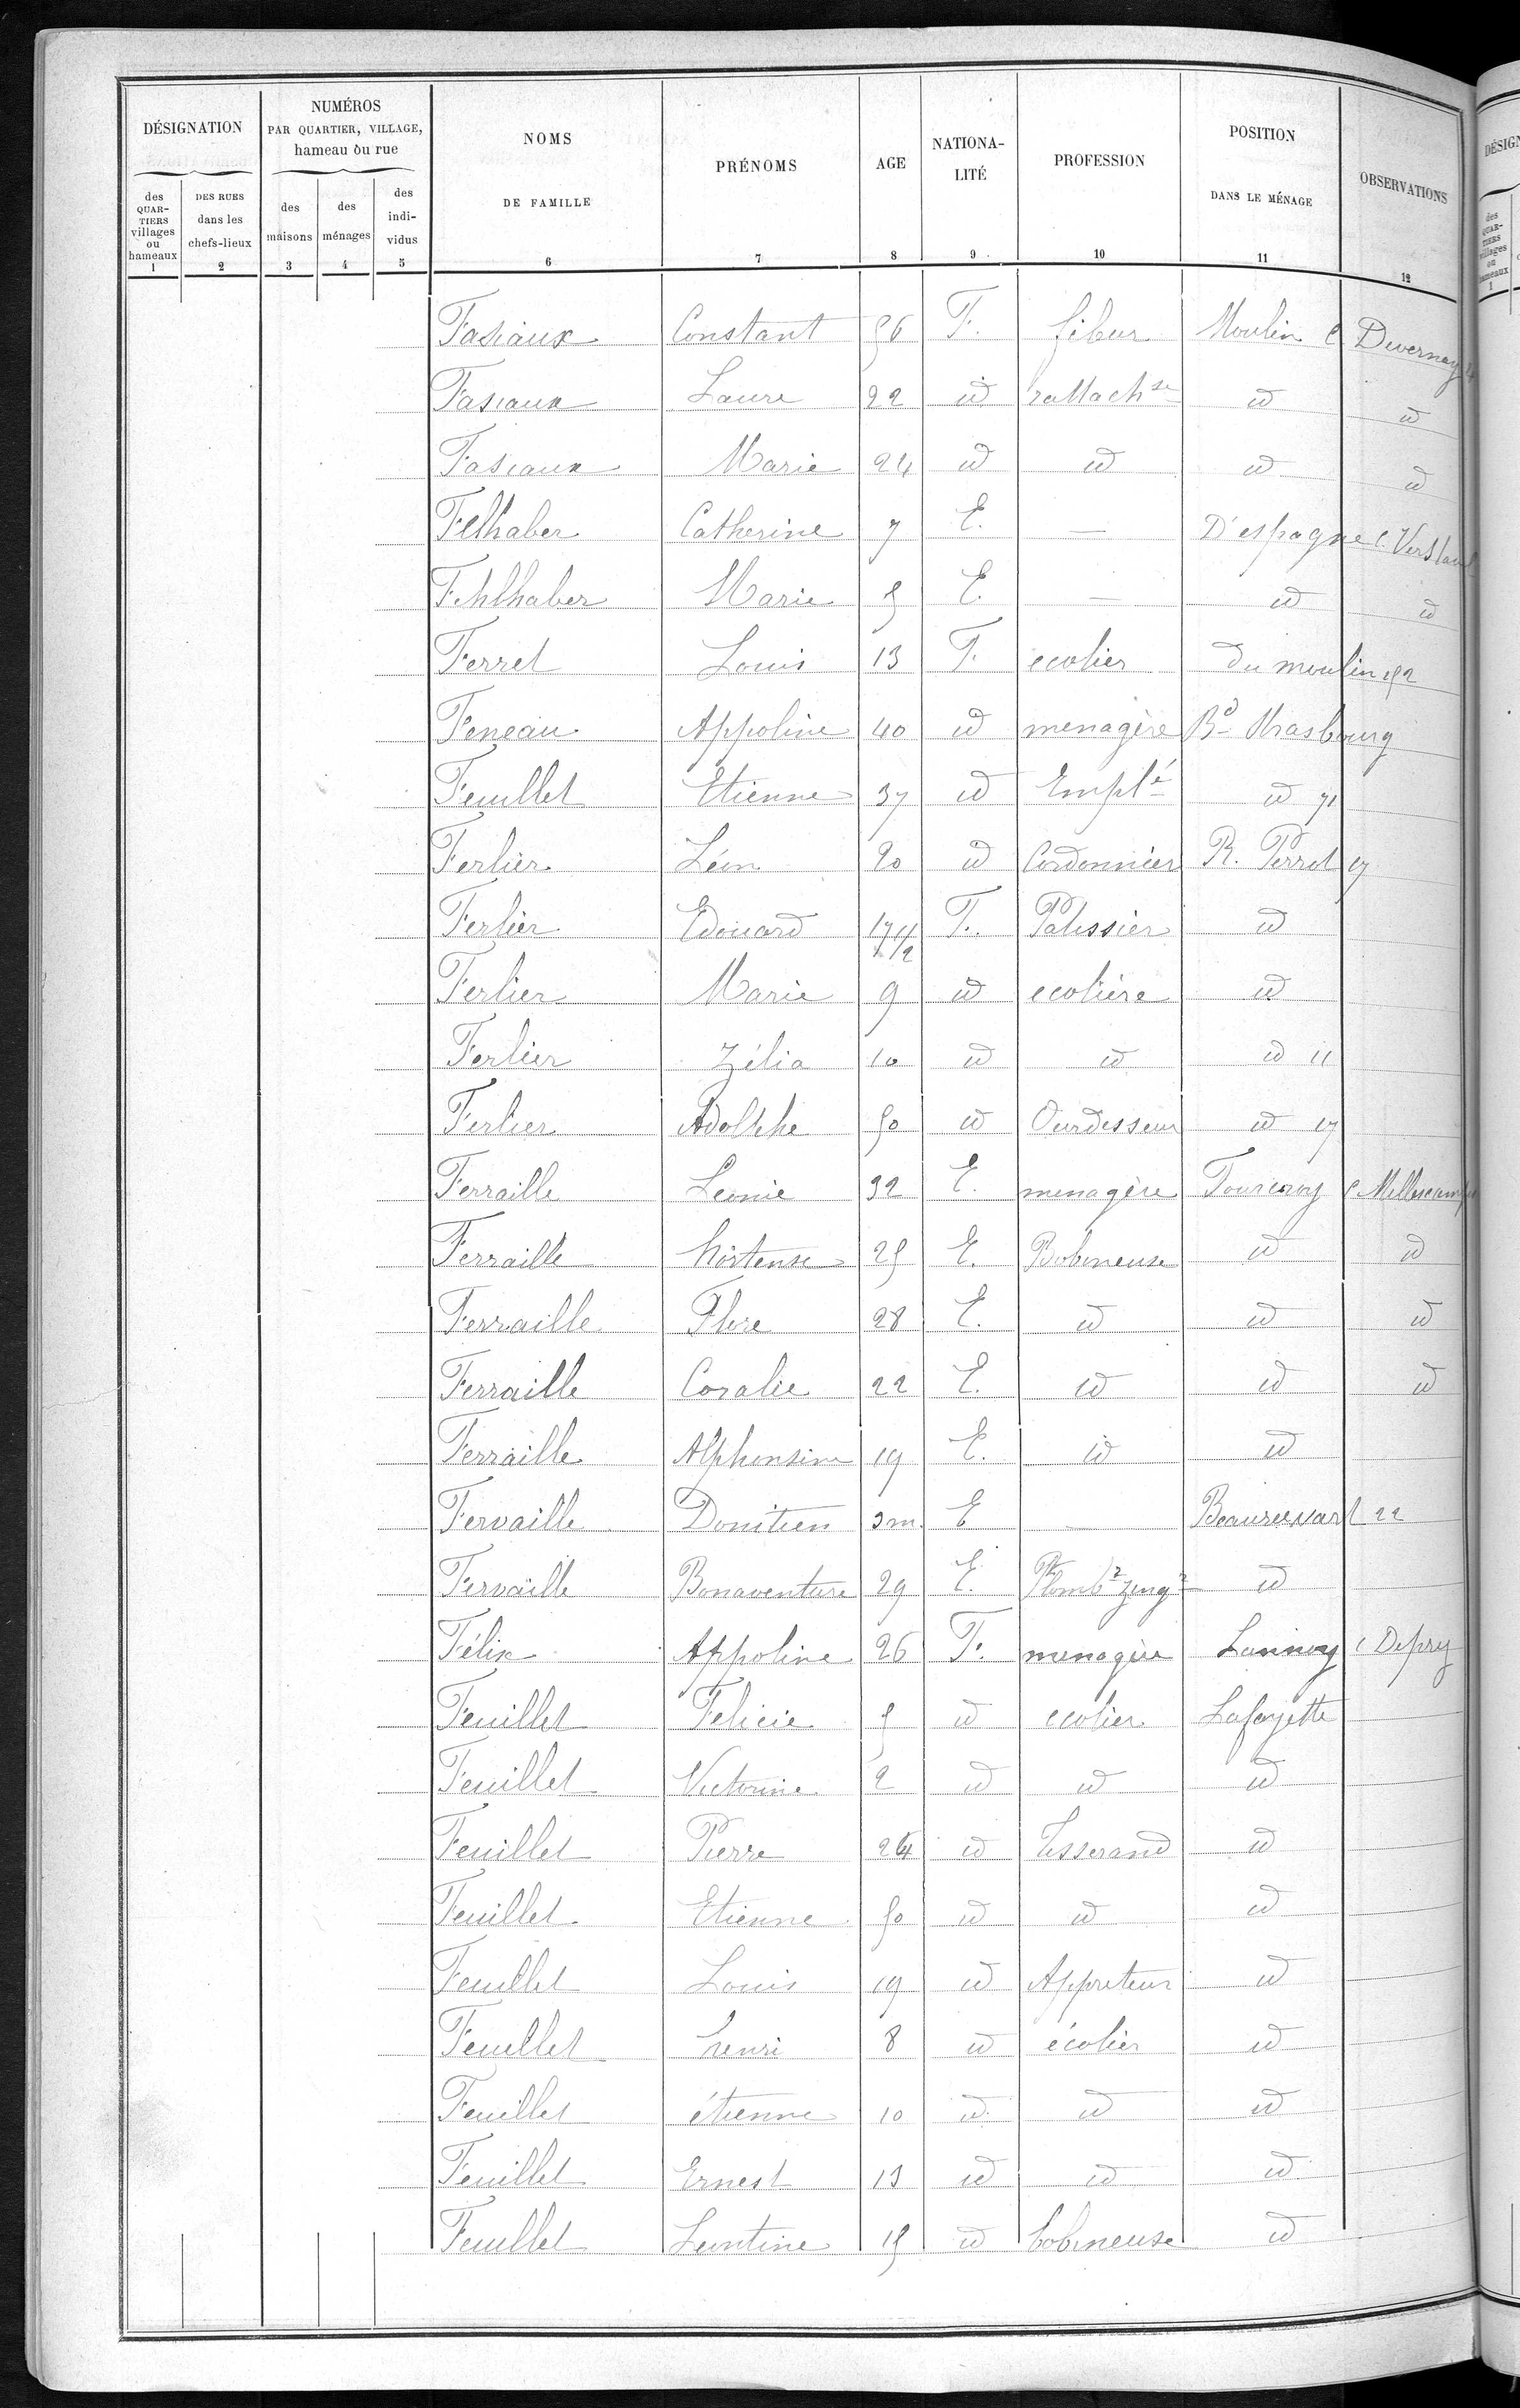 DÉSIGNATION NUMÉROS PAR QUARTIER, VILLAGE, hameau ou rue NOMS DE FAMILLE PRÉNOMS AGE NATIONALITÉ PROFESSION POSITION DANS LE MÉNAGE OBSERVATIONS
des QUARTIERS villages ou hameaux DES RUES dans les chefs-lieux des maisons des ménages des individus
1 2 3 4 5 6 7 8 9 10 11 12
Fasiaux Constant 56 F. fileur Moulin C Duvernay 4
Fasiaux Laure 22 id rattachse id id
Fasiaux Marie 24 id id id id
Felhaber Catherine 7 E. — D'espagne C.
Fehlhaber Marie 5 E. — id id
Ferret Louis 13 F. ecolier du moulin 52
Feneau Appoline 40 id menagère Bd Strasbourg
Feuillet Etienne 37 id Emplé id 71
Ferlier Léon 20 id Cordonnier R. Perrot 17
Ferlier Edouard 17 1/2 F. Patissier id
Ferlier Marie 9 id ecolière id
Ferlier Zélia 10 id id id 11
Ferlier Adolphe 50 id Ourdisseur id 17
Ferraille Leonie 32 E. menagère Tourcoing C Millescamps
Ferraille hortense 25 E. Bobineuse id id
Ferraille Flore 28 E. id id id
Ferraille Coralie 22 E. id id id
Ferraille Alphonsine 19 E. id id
Fervaille Donitien 3 m. E — Beaurewart 22
Fervaille Bonaventure 29 E. Plombr zingr id
Félix Appoline 26 F. menagère Lannoy C Depry
Feuillet Felicie 5 id ecolier Lafayette
Feuillet Victorine 2 id id id
Feuillet Pierre 24 id Tisserand id
Feuillet Etienne 50 id id id
Feuillet Louis 19 id Appreteur id
Feuillet henri 8 id écolier id
Feuillet étienne 10 id id id
Feuillet Ernest 13 id id id
Feuillet Leontine 15 id bobineuse id